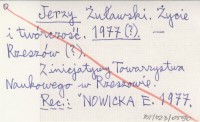 Jerzy Żuławski. Życie
i twórczość. 1977 (?). —
Rzeszów (?).
Z inicjatywy Towarzystwa
Naukowego w Rzeszowie.
Rec.: NOWICKA E. 1977.